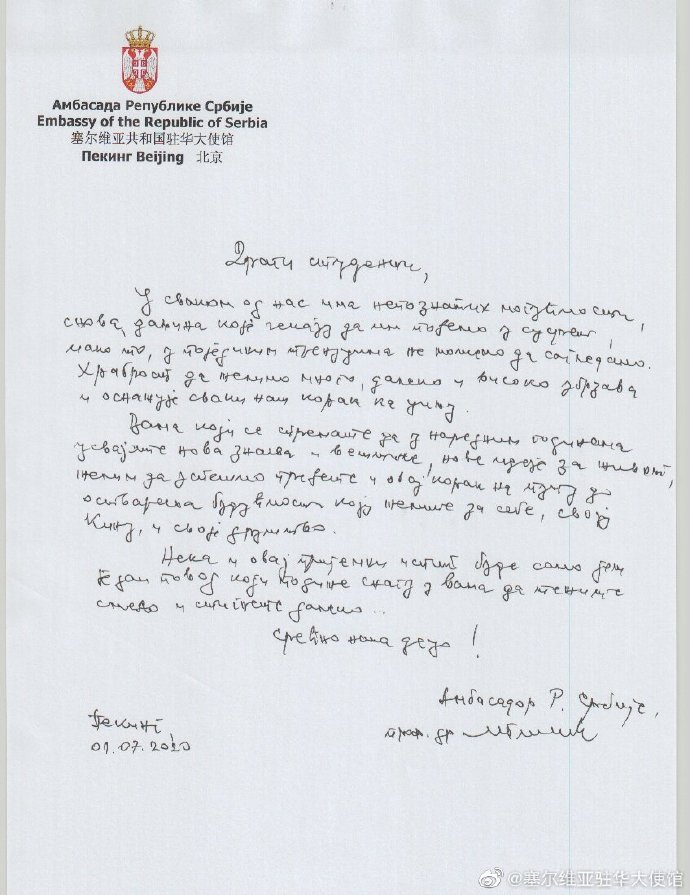 Амбасада Републике Србије
Embassy of the Republic of Serbia
塞尔维亚共和国驻华大使馆
Пекинг Beijing 北京
Драги студенти,
У сваком од нас има непознатих могућности,
снова, даљина које чекају да им пођемо у сусрет,
иако то, у појединим тренуцима не можемо да сагледамо.
Храброст да желимо много, далеко и високо убрзава
и оснажује сваки наш корак ка циљу.
Вама који се спремате да у наредним годинама
усвајате нова знања и вештине, нове идеје за живот,
желим да успешно пређете и овај корак на путу до
остварења будућности коју желите за себе, своју
Кину, и своје друштво.
Нека и овај пријемни испит буде само још
један повод који подиже снагу у вама да желите
смело и стигнете далеко..
Срећно нама децо!
Амбасадор Р. Србије,
проф. др
Пекинг,
01.07.2020
@塞尔维亚驻华大使馆